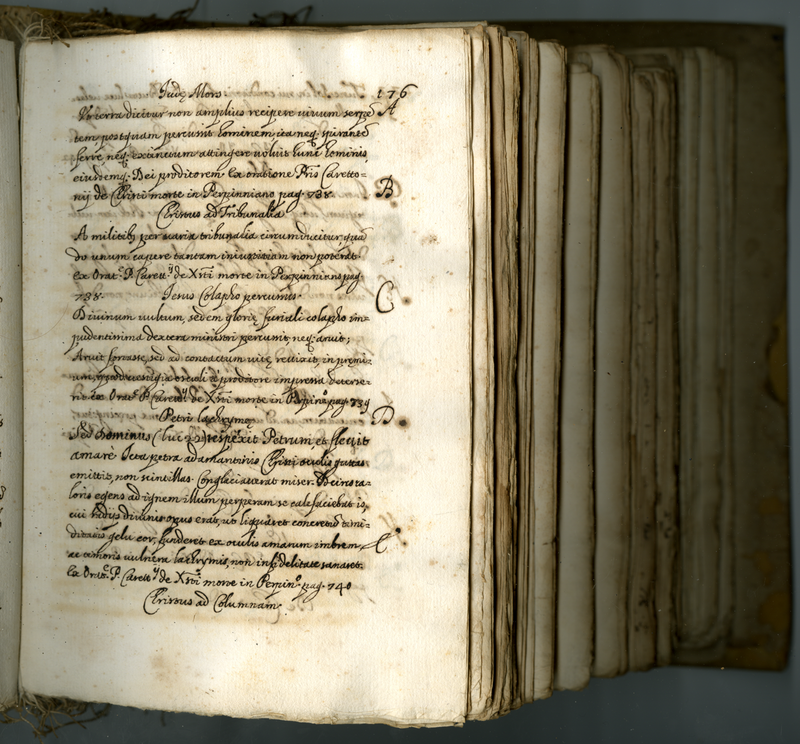 Judę Mors. 176
Ut terra dicitur non amplius recipere vivum serpē A
tem postquam percussit hominem, ita neq. spirantē
ferre neq. extinctum attingere voluit hunc hominis,
eiusdemq. Dei proditorem. Ex oratione Pris Caretto=
nij de Christi morte in Perpinniano pag. 738. B
Christus ad Tribunalia
A militib9 per varia tribunalia circumducitur, quā
do unum capere tantam iniustitiam non poterat.
ex Orat.e P. Carett.ij de Xristi morte in Perpinniano pag.
738. Jesus Colapho percussus. C
Divinum vultum, sedem glorię, furiali colapho im=
pudentissima dextera ministri percussit, neq. aruit;
Aruit fortasse, sed ad contactum vitę revixit, in premi=
um, quod vestigia osculi à proditore impressa deterse=
rit. ex Orat.e P. Carett.ij de Xristi morte in Perpin.o pag. 739
Petri lachrymę D
Sed Dominus (luc 22) respexit Petrum et flevit
amarè. Icta petra adamantinis Christi oculis guttas
emittit, non scintillas. Conglaciaverat miser. Is ca=
loris egens ad ignem illum perperam se calefaciebat is,
cui sidus divinis opus erat, ut liquaret concretū timi=
ditatis gelu cor, funderet ex oculis amarum imbrem, E
ac amoris vulnera lachrymis, non infidelitate sanaret.
Ex Orat.e P. Carett.ij de Xristi morte in Perpin.o pag. 740
Christus ad Columnam.